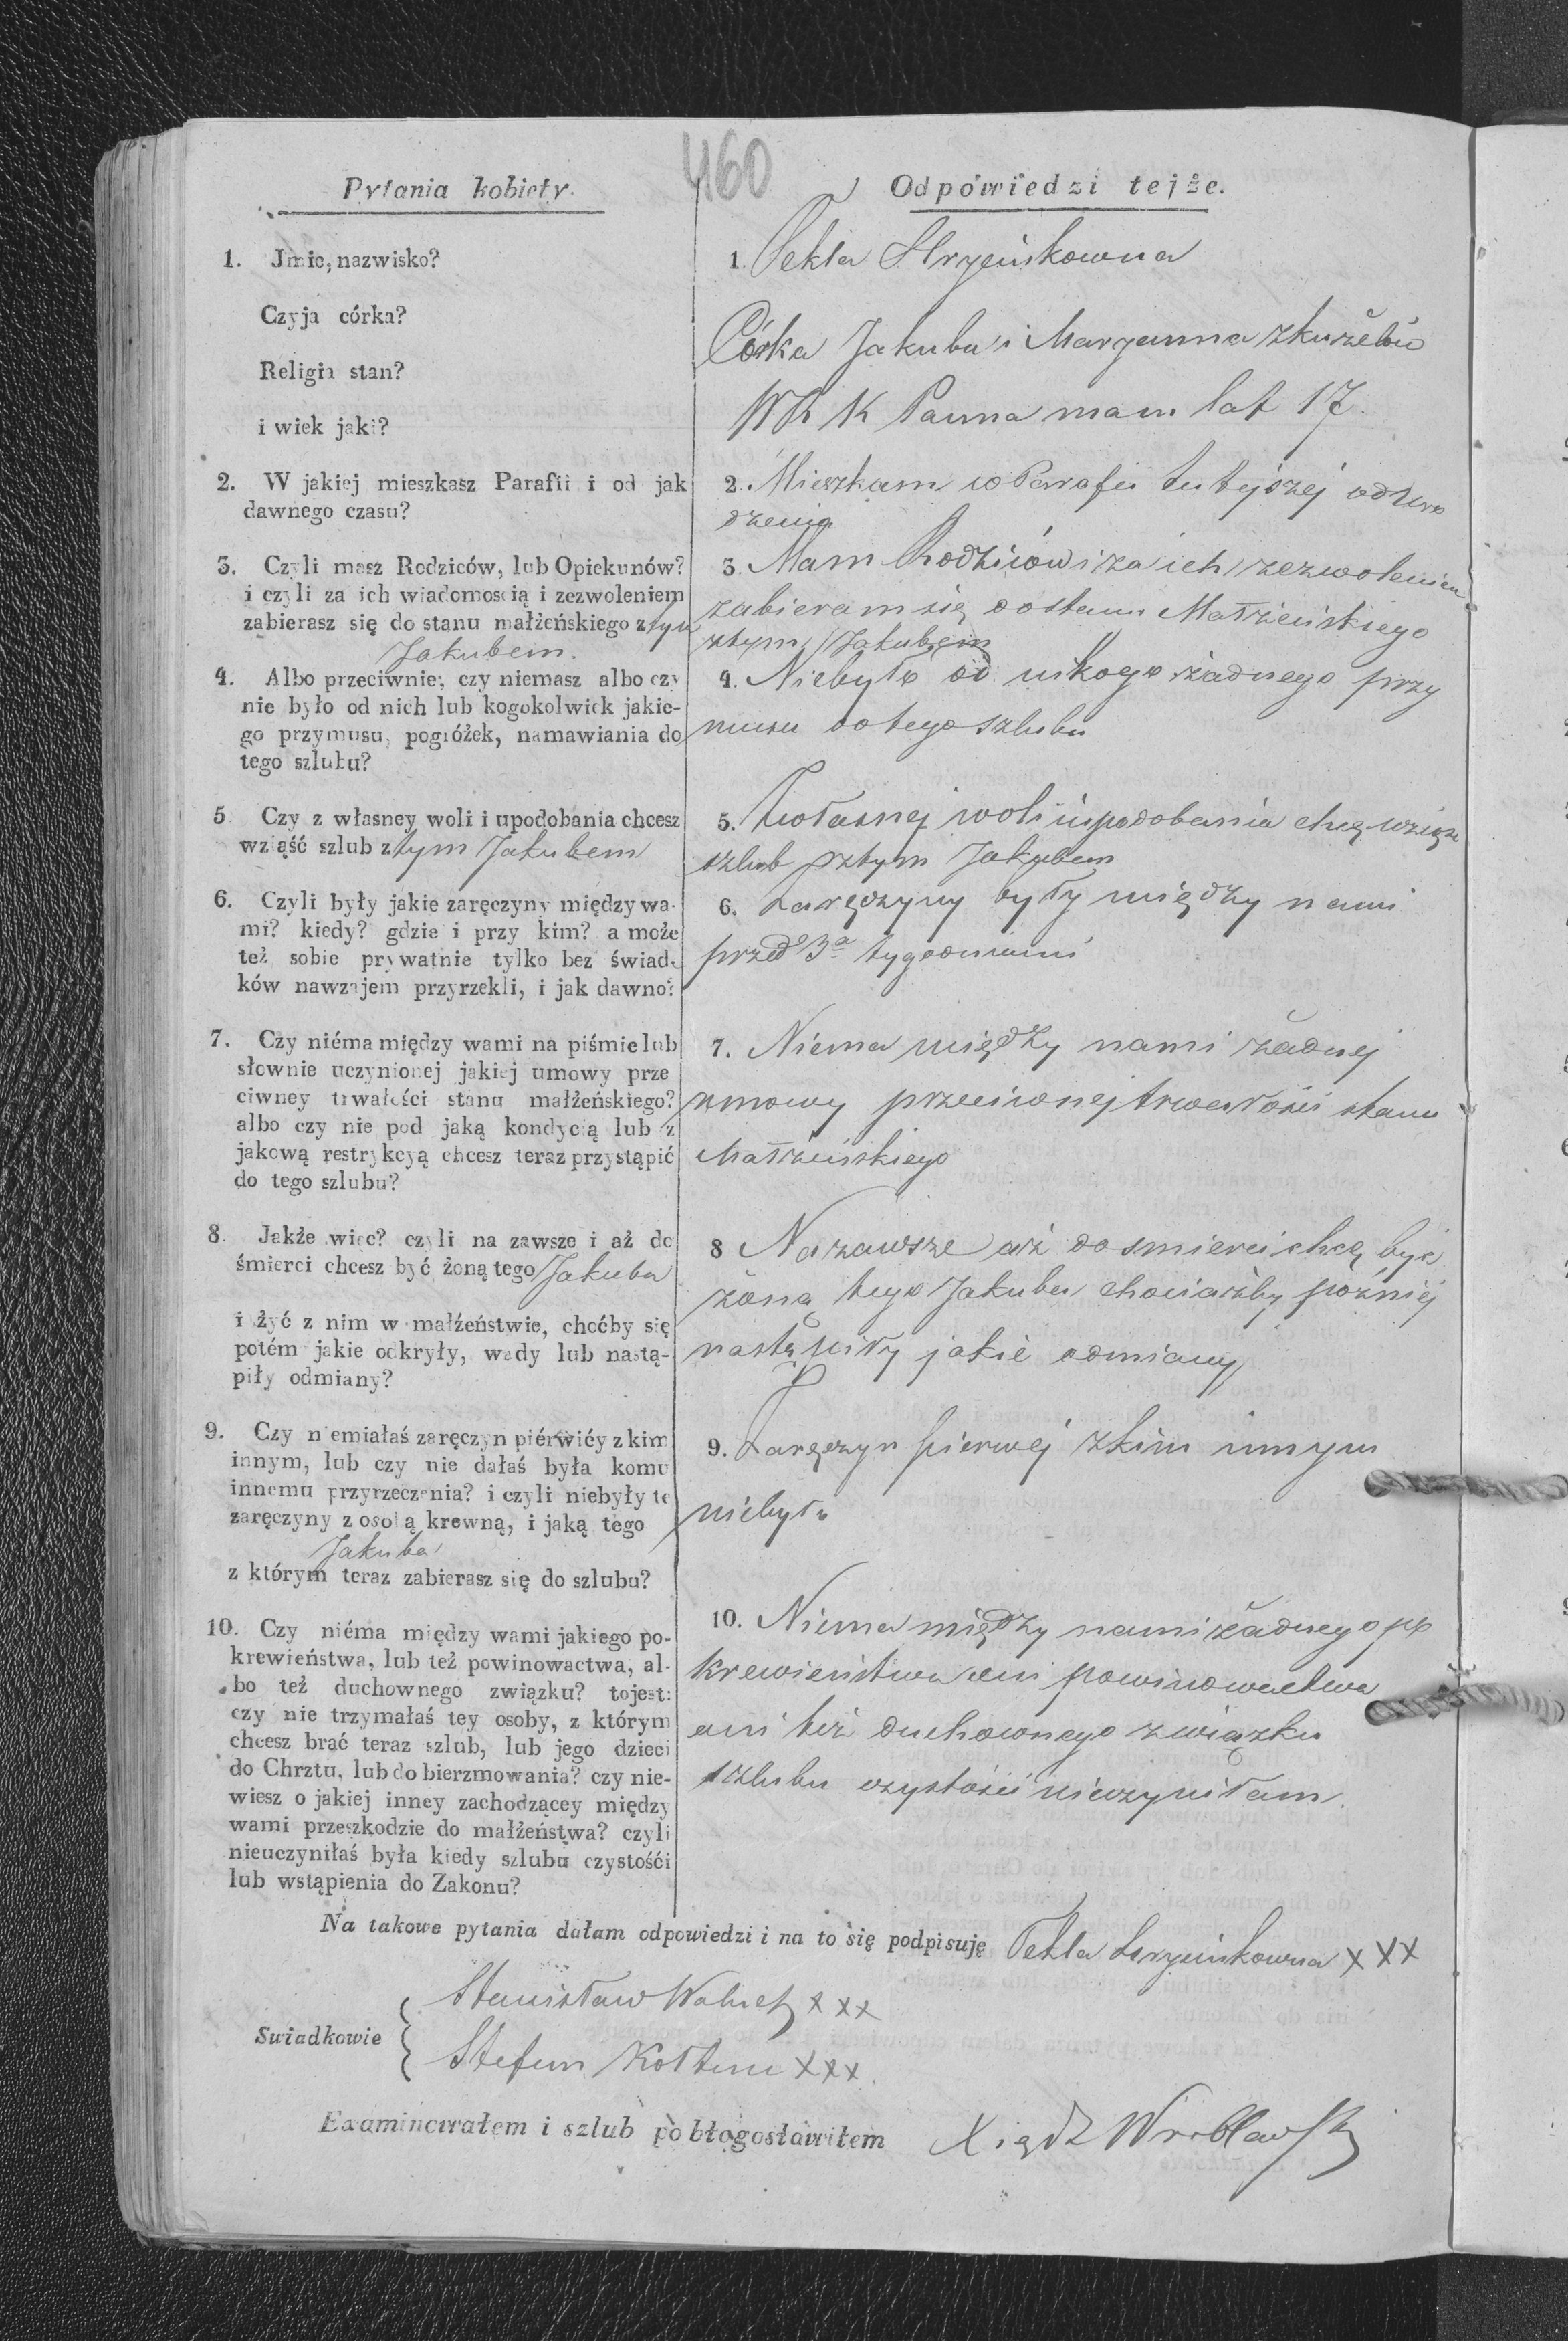 460
Pytania kobiety.
Odpowiedzi tejże.
1. Jmie, nazwisko?
Czyja córka?
Religia stan?
i wiek jaki?
1. Tekla
Córka Jakuba i Maryanna
W R K Panna mam lat 17.
2. W jakiej mieszkasz Parafii i od jak
dawnego czasu?
2. Mieszkam w Parafii tutejszej od Uro
dzenia
3. Czyli masz Rodziców, lub Opiekunów?
i czyli za ich wiadomością i zezwoleniem
zabierasz się do stanu małżeńskiego z tym
Jakubem.
3. Mam Rodziców i za ich zezwoleniem
zabieram się do stanu Małżeńskiego
z tym Jakubem
4. Albo przeciwnie: czy niemasz albo czy
nie było od nich lub kogokolwiek jakie-
go przymusu, pogróżek, namawiania do
tego szlubu?
4. Niebyło od nikogo żadnego przy
musu do tego szlubu
5. Czy z własney woli i upodobania chcesz
wziąść szlub z tym Jakubem
5. Z własnej woli i upodobania chcę wziąść
szlub z tym Jakubem
6. Czyli były jakie zaręczyny między wa-
mi? kiedy? gdzie i przy kim? a może
też sobie prywatnie tylko bez świad-
ków nawzajem przyrzekli, i jak dawno?
6. Zaręczyny były między nami
przed 3a tygodniami
7. Czy niéma między wami na piśmie lub
słownie uczynionej jakiej umowy prze
ciwney trwałości stanu małżeńskiego?
albo czy nie pod jaką kondycią lub z
jakową restrykcyą chcesz teraz przystąpić
do tego szlubu?
7. Niema między nami żadnej
umowy przeciwnej trwałości stanu
Małżeńskiego
8. Jakże więc? czyli na zawsze i aż do
śmierci chcesz być żoną tego Jakuba
i żyć z nim w małżeństwie, choćby się
potém jakie odkryły, wady lub nastą-
piły odmiany?
8 Na zawsze aż do smierci chcę być
żoną tego Jakuba chociażby późniéj
nastąpiły jakie odmiany
9. Czy niemiałaś zaręczyn piérwićy z kim
innym, lub czy nie dałaś była komu
innemu przyrzeczenia? i czyli niebyły te
zaręczyny z osobą krewną, i jaką tego
Jakuba
z którym teraz zabierasz się do szlubu?
9. Zaręczyn pierwej z kim innym
niebyło
10. Czy niéma między wami jakiego po-
krewieństwa, lub też powinowactwa, al-
bo też duchownego związku? tojest:
czy nie trzymałaś tey osoby, z którym
chcesz brać teraz szlub, lub jego dzieci
do Chrztu, lub do bierzmowania? czy nie-
wiesz o jakiej inney zachodzącey między
wami przeszkodzie do małżeństwa? czyli
nieuczyniłaś była kiedy szlubu czystośći
lub wstąpienia do Zakonu?
10. Niema między nami żadnego po
krewieństwa ani powinowactwa
ani też duchownego związku
szlubu czystości nieczyniłam.
Na takowe pytania dałam odpowiedzi i na to się podpisuję Tekla XXX
Swiadkowie
Stanisław XXX
Stefan XXX.
Examinowałem i szlub pobłogosławiłem Xiądz Wroblawski